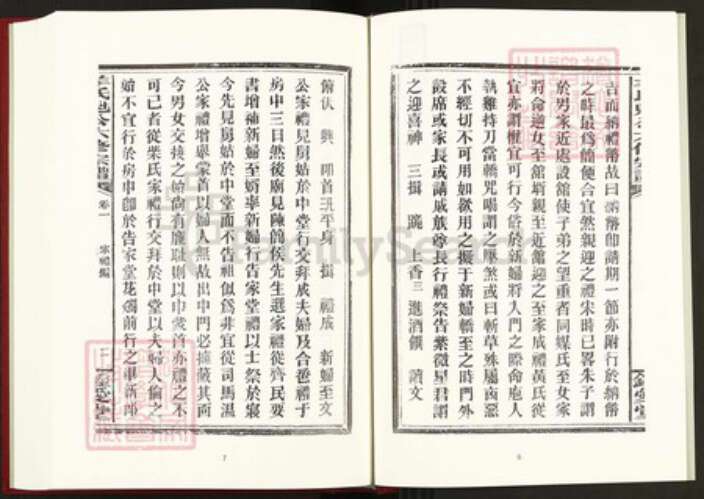 吉而納禮幣故曰納幣即請期一節亦附行於納幣
之時最爲簡便合宜然親迎之禮宋時已畧朱子謂
於男家近處設舘使子弟之望重者同媒氏至女家
將命逆女至舘壻親至近舘迎之至家成禮黃氏從
宜亦謂權宜可行今俗於新婦將入門之際命庖人
執雞持刀當轎咒唱謂之壓煞或曰斬草殊屬凶惡
不經切不可用如欲用之撤于新婦轎至之時門外
設席或家長或請戚族尊長行禮祭告紫微星君謂
之迎喜神 三揖 跪 上香三 進酒饌 讀文
6
俯伏 興 叩首三平身 揖 禮成 新婦至文
公家禮見舅姑於中堂行交拜成夫婦及合卺禮于
房中三日然後廟見陳簡侯先生選家禮從齊民要
書增補新婦至婿率新婦行告家堂禮以士祭於寢
今先見舅姑於中堂而不告祖似爲非宜從司馬溫
公家禮增舉蒙首以婦人無故出中門必擁蔽其面
今男女交接之始尚有廉恥則以巾蒙首亦禮之不
可已者從柴氏家禮行交拜於中堂以夫婦人倫之
始不宜行於房中卽於告家堂花燭前行之畢新郎
卷一
冢禮編
7
FamilySearch